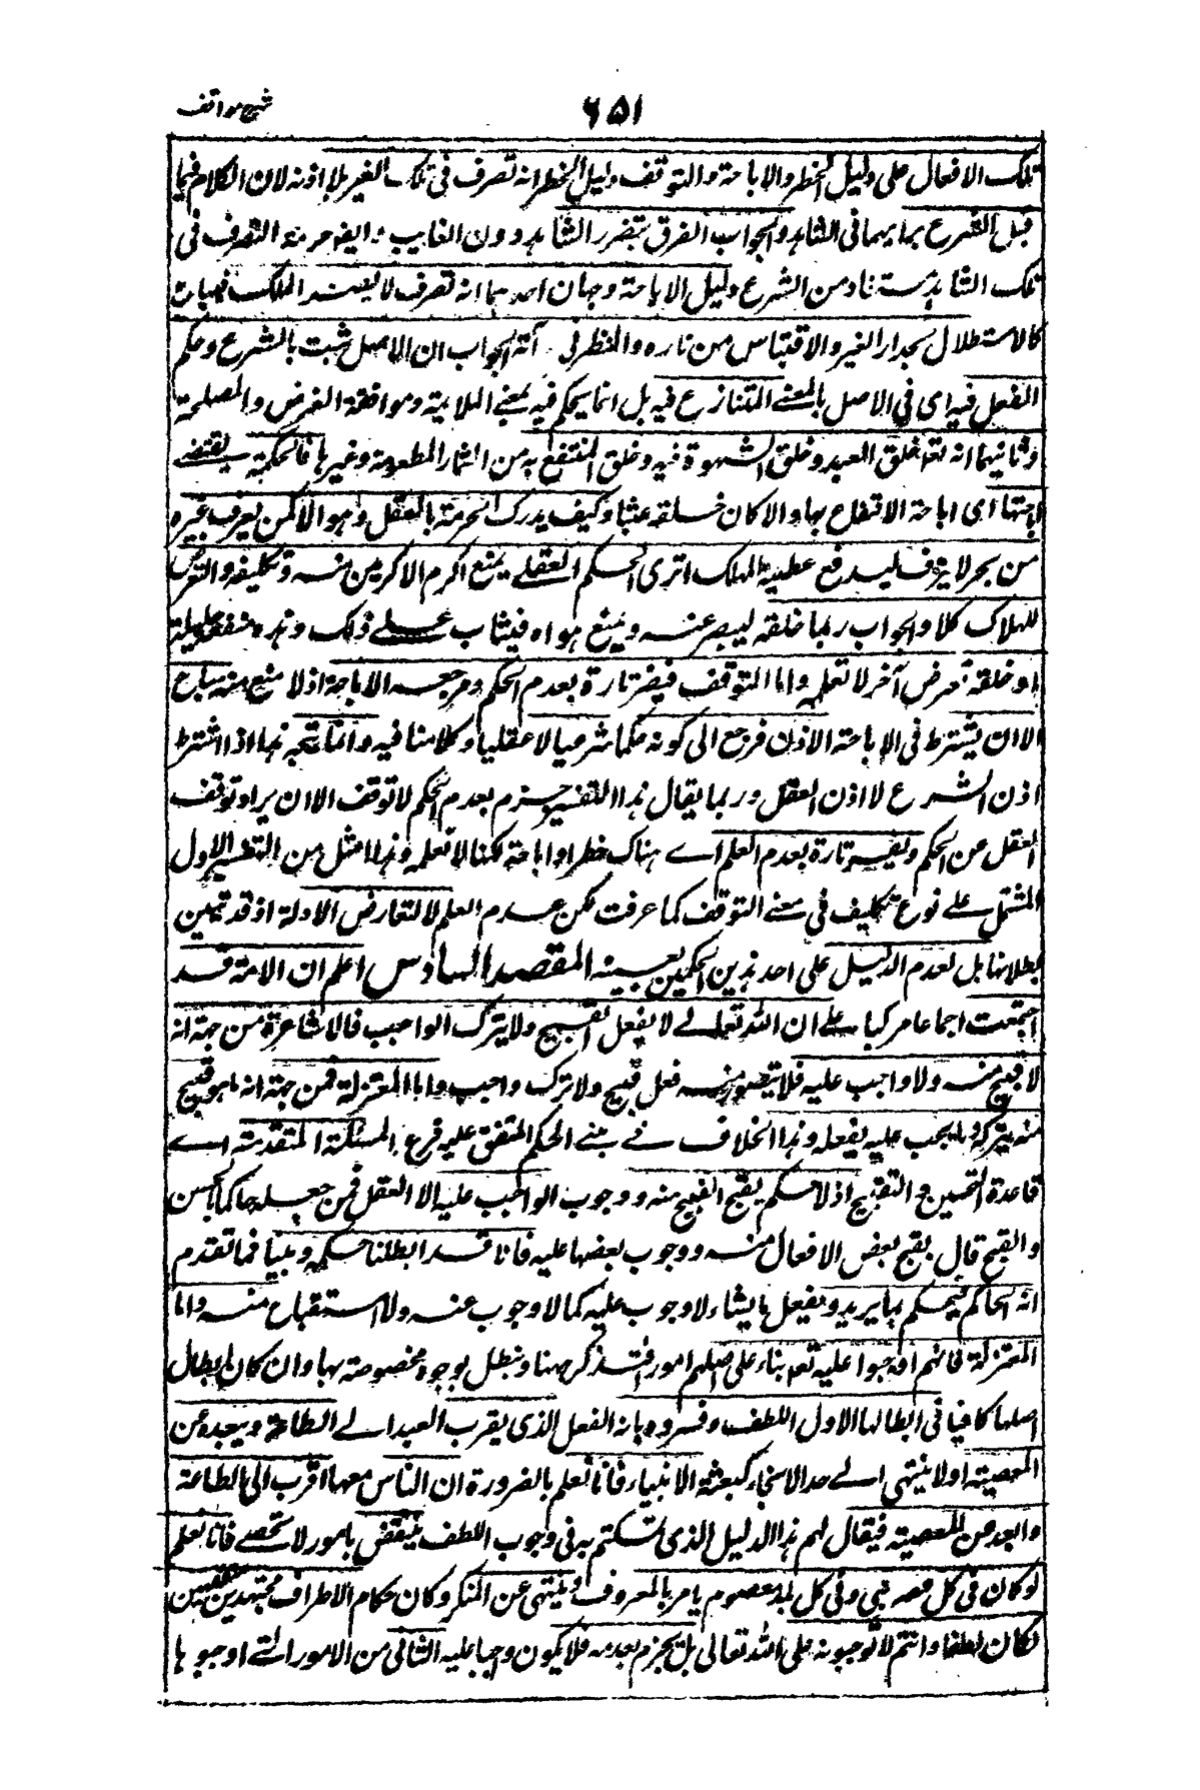 شرح مواقف
٦٥١
تلك الافعال على دليل الحظر والاباحة والتوقف دليل الحظر انه تصرف في ملك الغير بلا اذنه لان الكلام فيما
قبل الشرع بما يهما في الشاهد والجواب الفرق بتضرر الشاهد دون الغايب وايضا حرمة التصرف في
ملك الشاهد مستفاد من الشرع دليل الاباحة وجهان احدهما انه تصرف لا يضر المالك فيباح
كالاستظلال بجدار الغير والاقتباس من ناره والنظر في آته الجواب ان الاصل ثبت بالشرع وحكم
العقل فيه اى في الاصل بالمعنے المتنازع فيه بل انما يحكم فيه بمعنے الملايمة وموافقة الغرض والمصلحة
وثانيهما انه تعالى خلق العبد وخلق الشهوة فيه وخلق المنتفع به من الثمار المطعومة وغيرها فالحكمة يقتضے
اباحتها اى اباحة الانتفاع بها والا كان خلقه عبثا وكيف يدرك الحرمة بالعقل وما هو الا كمن يغرف غيره
من بحر لا ينزف ليدفع عطشه المهلك اترى الحكم العقلے يمنع اكرم الاكرمين منه وتكليفه والتعرض
للهلاك كلا والجواب ربما خلقه ليصبر عنه ويمنع هواه فيثاب علے ذلك وهذه منفعة جليلة
او خلقه لغرض آخر لا نعلمه واما التوقف فيفسر تارة بعدم الحكم ومرجعه الاباحة اذ لا منع منه مباح
الا ان يشترط في الاباحة الاذن فرجع الى كونه حكما شرعيا لا عقليا وكلامنا فيه وانما يتجه هذا اذا اشترط
اذن الشرع لا اذن العقل وربما يقال هذا التفسير جزم بعدم الحكم لا توقف الا ان يراد توقف
العقل عن الحكم ويفسر تارة بعدم العلم اے هناك حظر او اباحة لكنا لا نعلمه وهذا امثل من التفسير الاول
المشتمل علے نوع تكليف في معنے التوقف كما عرفت لكن عدم العلم لا لتعارض الادلة اذ قد تبين
بطلانها بل لعدم الدليل على احد هذين الحكمين بعينه المقصد السادس اعلم ان الامة قد
اجتمعت اجماعا مركبا علے ان الله تعالے لا يفعل القبيح ولا يترك الواجب فالاشاعرة من جهة انه
لا قبيح منه ولا واجب عليه فلا يتصور منه فعل قبيح ولا ترك واجب واما المعتزلة فمن جهة انه ما هو قبيح
منه يتركه وما يجب عليه يفعله وهذا الخلاف فے مبنے الحكم المتفق عليه فرع المسئلة المتقدمة اے
قاعدة التحسين والتقبيح اذ لا حكم بقبح القبيح منه ووجوب الواجب عليه الا العقل فمن جعله حاكما بالحسن
والقبح قال بقبح بعض الافعال منه ووجوب بعضها عليه فانا قد ابطلنا حكمه وبينا فيما تقدم
انه الحاكم فيحكم بما يريد ويفعل ما يشاء لا وجوب عليه كما لا وجوب عنه ولا استقباح منه واما
المعتزلة فانهم اوجبوا عليه تعالى بناء على اصلهم امورا فنذكرها هنا ونبطل بوجوه مخصوصة بها وان كان ابطال
اصلها كافيا في ابطالها الاول اللطف وفسروه بانه الفعل الذى يقرب العبد الے الطاعة ويبعده عن
المعصية او لا ينتهى الے حد الالجاء كبعثة الانبياء فانا نعلم بالضرورة ان الناس معها اقرب الى الطاعة
وابعد عن المعصية فيقال لهم هذا الدليل الذى تمسكتم به في وجوب اللطف ينتقض بامور لا تحصے فانا نعلم
لو كان في كل عصر نبى وفي كل بلد معصوم يامر بالمعروف وينهى عن المنكر وكان حكام الاطراف مجتهدين متقين
لكان لطفا وانتم لا توجبونه على الله تعالى بل يجزم بعدمه فلا يكون واجبا عليه الثانى من الامور التے اوجبوها